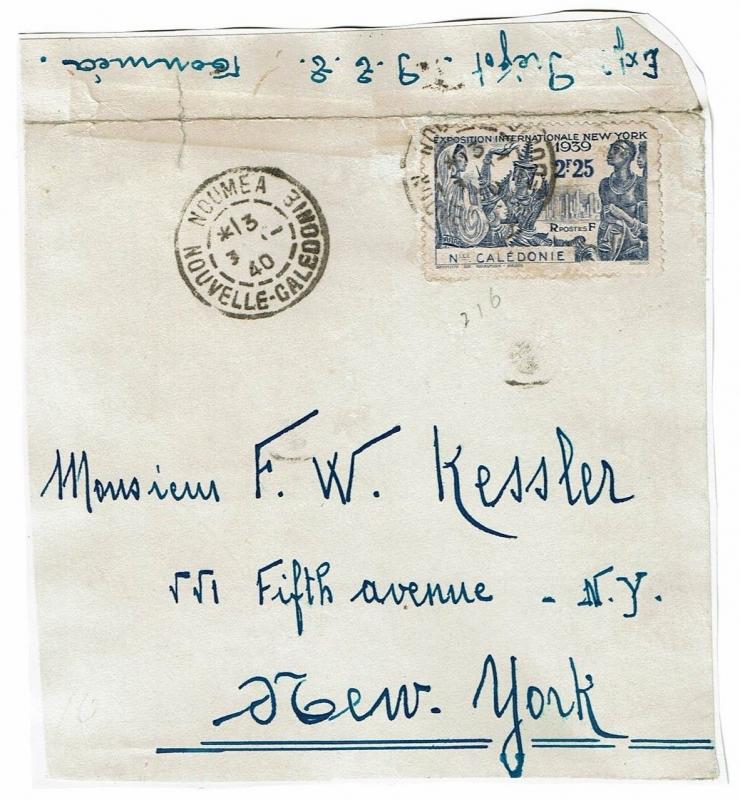 Exp. Piégot. J.E.E. Nouméa.
EXPOSITION INTERNATIONALE NEW YORK
1939
2F25
R POSTES F
NLLE CALÉDONIE
NOUMEA
*13
3 -1
40
NOUVELLE-CALEDONIE
216
Monsieur F. W. Kessler
551 Fifth avenue - N.Y.
New-York